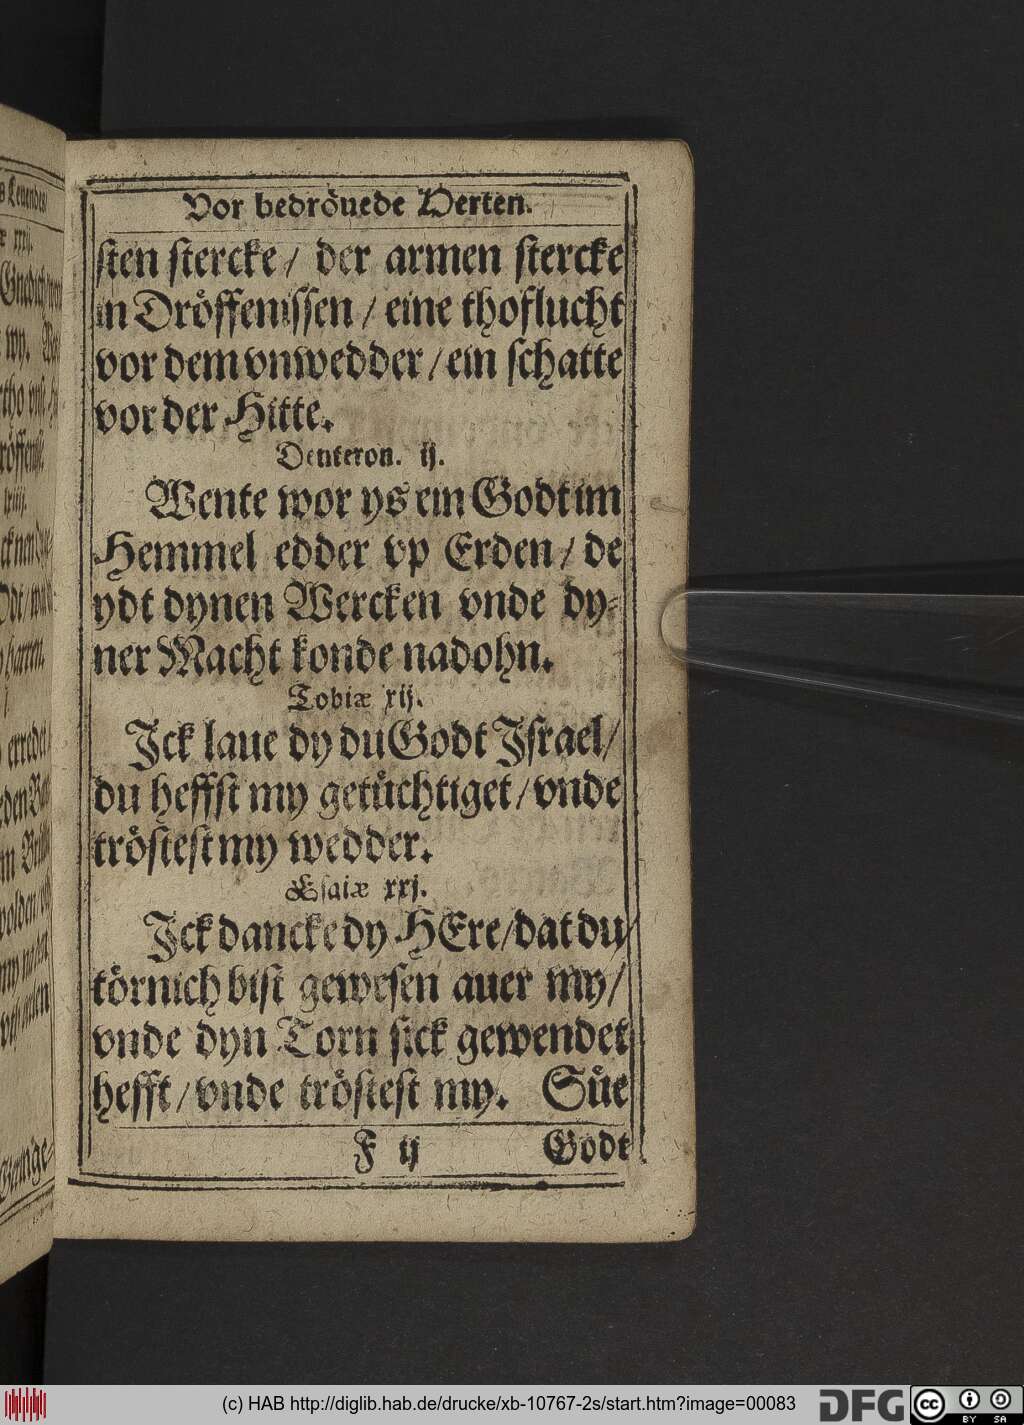 s Leuendes
æ xxxij.
Gnedich
wy.
tho vnse
röffenisse
harren.
erredet
Vor bedröuede Herten.
sten stercke / der armen stercke
in Dröffenissen / eine thoflucht
vor dem vnwedder / ein schatte
vor der Hitte.
Deuteron. ij.
Wente wor ys ein Godt im
Hemmel edder vp Erden / de
ydt dynen Wercken vnde dy-
ner Macht konde nadohn.
Tobiæ xij.
Jck laue dy du Godt Jsrael /
du heffst my getüchtiget / vnde
tröstest my wedder.
Esaiæ xxj.
Jck dancke dy HEre / dat du
törnich bist gewesen auer my /
vnde dyn Torn sick gewendet
hefft / vnde tröstest my. Süe
F ij Godt
(c) HAB http://diglib.hab.de/drucke/xb-10767-2s/start.htm?image=00083
DFG
cc
BY SA